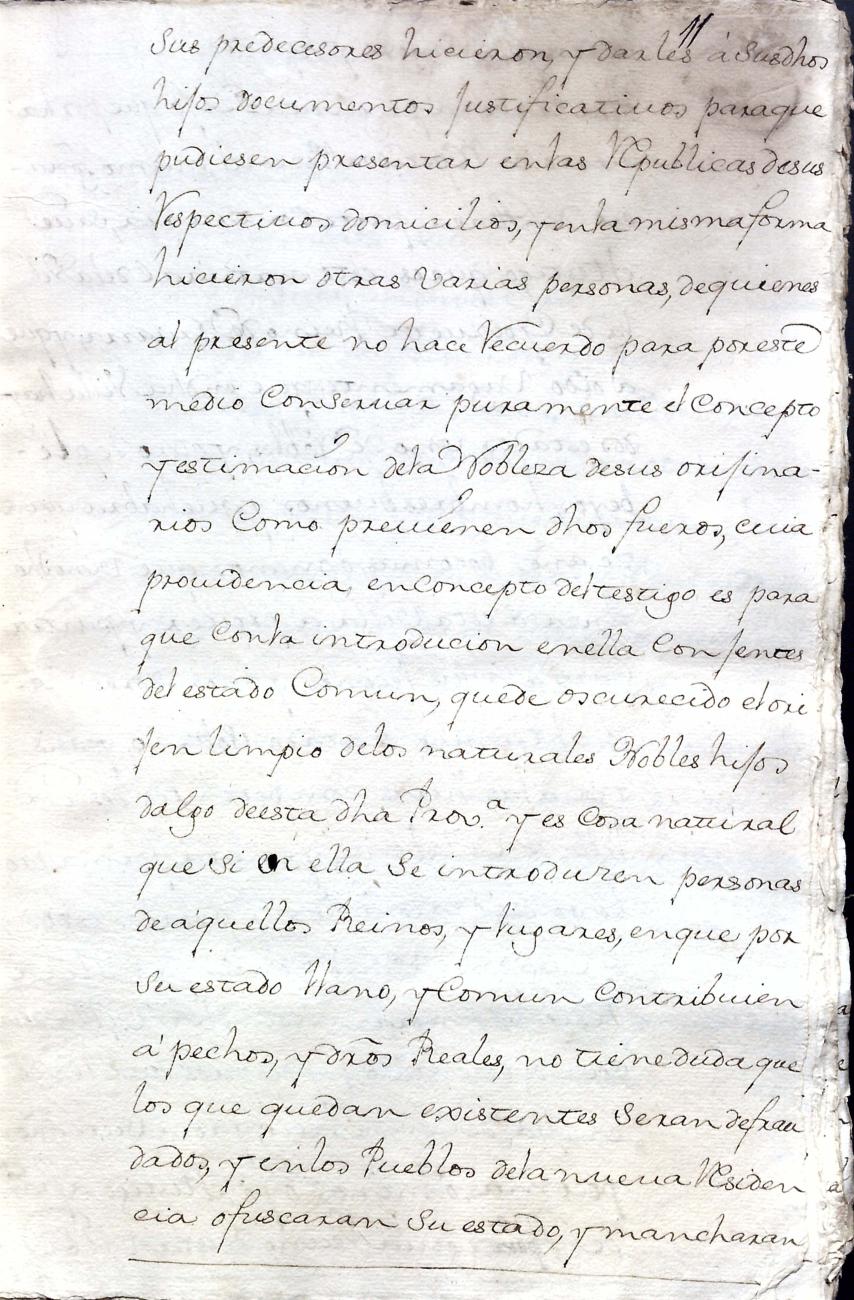 11
Sus predecesores hicieron, y darles á Sus dhos
hijos Documentos Justificativos para que
pudiesen presentar en las Republicas de sus
Respectivos domicilios, y en la misma forma
hicieron otras varias personas, de quienes
al presente no hace Recuerdo para por este
medio Conservar puramente el Concepto
y estimación de la Nobleza de sus orijina-
rios Como previenen dhos fueros, cuia
providencia, en Concepto del testigo es para
que Con la introducion en ella Con Jentes
del estado Comun, quede oscurecido el ori
jen limpio de los naturales Nobles hijos
dalgo de esta dha Prov.ª y es Cosa natural
que si en ella se introduzen personas
de aquellos Reinos, y lugares, en que por
su estado llano, y Comun Contribuien
á pechos, y dros Reales, no tiene duda que
los que quedan existentes seran defrau
dados, y en los Pueblos de la nueva Residen
cia ofuscaran su estado, y mancharan